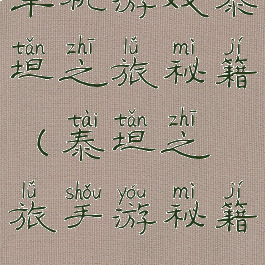 单机游戏泰
tǎn zhī lǚ mì jí
坦之旅秘籍
tài tǎn zhī
（泰坦之
lǚ shǒu yóu mì jí
旅手游秘籍